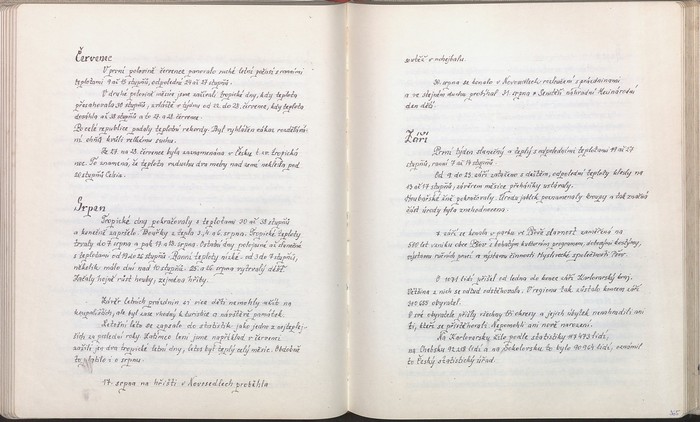 Červenec
V první polovině července panovalo suché letní počasí s ranními
teplotami 9 až 15 stupňů, odpolední 24 až 27 stupňů.
V druhé polovině měsíce jsme zažívali tropické dny, kdy teplota
přesahovala 30 stupňů, zvláště v týdnu od 22. do 28. července, kdy teplota
dosáhla až 38 stupňů a to 27. a 28. července.
Po celé republice padaly teplotní rekordy. Byl vyhlášen zákaz rozdělává-
ní ohňů kvůli velkému suchu.
Ze 27. na 28. července byla zaznamenána v Česku t.zv. tropická
noc. To znamená, že teplota vzduchu dva metry nad zemí neklesla pod
20 stupňů Celsia.
Srpen
Tropické dny pokračovaly s teplotami 30 až 38 stupňů
a konečně zapršelo. Bouřky z tepla 3., 4. a 6. srpna. Tropické teploty
trvaly do 7. srpna a pak 17. a 18. srpna. Ostatní dny polojasné až slunečné
s teplotami od 19 do 26 stupňů. Ranní teploty nízké - od 3 do 7 stupňů,
několik málo dní nad 10 stupňů. 25. a 26. srpna vytrvalý déšť.
Začaly hojně růst houby, zejména hřiby.
Závěr letních prázdnin si více děti nemohly užít na
koupalištích, ale byl zase vhodný k turistice a návštěvě památek.
Letošní léto se zapsalo do statistik jako jedno z nejteplej-
ších za poslední roky. Zatímco loni jsme například v červenci
zažili jen dva tropické letní dny, letos byl teplý celý měsíc. Obdobně
to platilo i o srpnu.
17. srpna na hřišti v Novosedlech proběhla
soutěž v nohejbalu.
30. srpna se konalo v Novosedlech rozloučení s prázdninami
a ve stejném duchu probíhal 31. srpna v náhradní Mezinárodní
den dětí.
Září
První týden slunečný a teplý s odpoledními teplotami 19 až 27
stupňů, ranní 7 až 14 stupňů.
Od 9. do 23. září zataženo s deštěm, odpolední teploty klesly na
13 až 17 stupňů, závěrem měsíce přeháňky ustávaly.
Houbařské žně pokračovaly. Úrodu jablek poznamenaly kroupy a tak značná
část úrody byla znehodnocena.
7. září se konala v parku ve slavnost zaměřená na
520 let vzniku obce s bohatým kulturním programem, dětskými kroužky,
výstavou ručních prací a výstavou činnosti Myslivecké společnosti
O 1071 lidí přišel od ledna do konce září Karlovarský kraj.
Většina z nich se odtud odstěhovala. V regionu tak zůstalo koncem září
300 655 obyvatel.
O své obyvatele přišly všechny tři okresy a jejich úbytek nenahradili ani
ti, kteří se přistěhovali. Nepomohli ani nově narození.
Na Karlovarsku žilo podle statistiky 117 473 lidí,
na Chebsku 92 218 lidí a na Sokolovsku to bylo 90 964 lidí, oznámil
to Český statistický úřad.